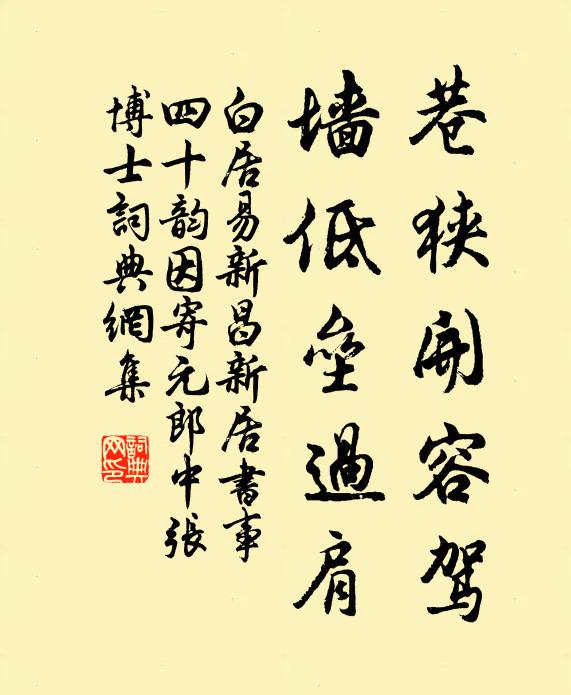 巷狹開容駕
墙低壘過肩
白居易新昌新居書事
四十韵因寄元郎中張
博士詞典網集
詞典
网印